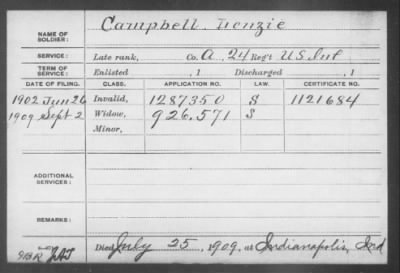 NAME OF SOLDIER: Campbell, Denzie
SERVICE: Late rank, Co. A, 24 Reg't U.S. Inf
TERM OF SERVICE: Enlisted , 1 Discharged , 1
DATE OF FILING. CLASS. APPLICATION NO. LAW. CERTIFICATE NO.
1902 Jun 26 Invalid, 1287350 S 1121684
1909 Sept 2 Widow, 926.571 S
Minor,
ADDITIONAL SERVICES:
REMARKS:
Died July 25, 1909, at Indianapolis, Ind